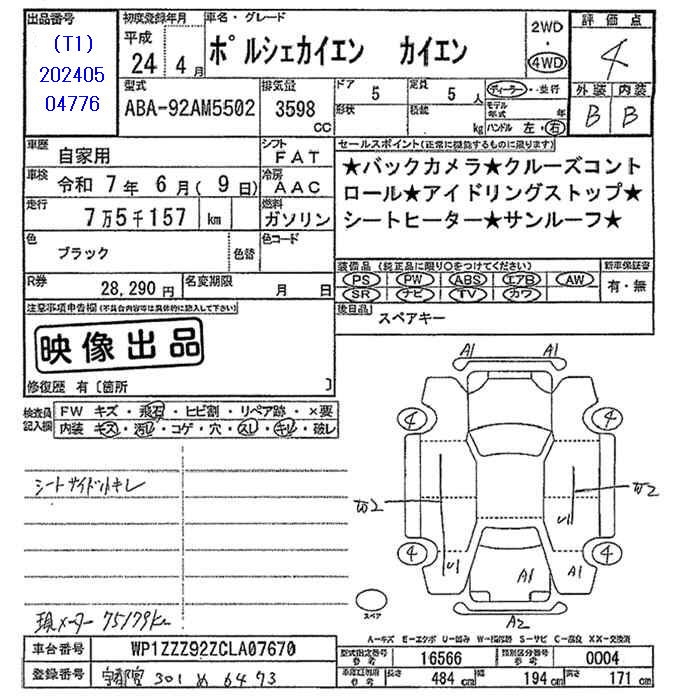 出品番号 初度登録年月 車名・グレード 2WD 評価点
(T1) 平成 ポルシェカイエン カイエン ・ 4
202405 24年 4月 4WD
04776
型式 排気量 ドア 定員 ディーラー・並行 外装 内装
ABA-92AM5502 3598 CC 5 5 人 B B
形状 積載 kg モデル年式 年
ハンドル 左・右
車歴 自家用 シフト FAT セールスポイント(正常に機能するものに限ります)
車検 令和 7年 6月( 9日) 冷房 AAC ★バックカメラ★クルーズコント
走行 7万5千157 km 燃料 ガソリン ロール★アイドリングストップ★
シートヒーター★サンルーフ★
色 ブラック 色替 色コード
装備品(純正品に限り○をつけてください) 新車保証書
R券 28,290円 名変期限 月 日 PS PW ABS エアB AW 有・無
SR ナビ TV カワ
注意事項申告欄(不具合内容等は具体的に記入して下さい) 後日品 スペアキー
映像出品
修復歴 有〔箇所 〕
検査員記入欄 FW キズ・飛石・ヒビ割・リペア跡・×要
内装 キズ・汚レ・コゲ・穴・スレ・キレ・破レ
A1 A1
4 4
シートサイドスレ キレ
W2 W2
U1
4 4
U1 A1 A1
スペア
A2
現メーター 75179km
A-キズ E-エクボ U-凹み W-補修跡 S-サビ C-腐食 XX-交換済
車台番号 WP1ZZZ92ZCLA07670 型式指定番号 参考 16566 類別区分番号 参考 0004
登録番号 宇都宮 301 め 6473 長さ 484 cm 幅 194 cm 高さ 171 cm